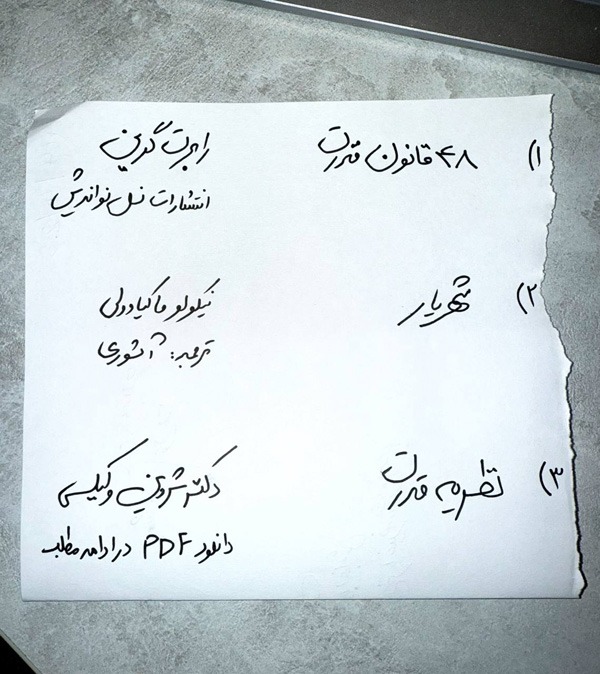 ۱) ۴۸ قانون قدرت رابرت گرین
انتشارات نسل نواندیش
۲) شهریار نیکولو ماکیاولی
ترجمه: آشوری
۳) نظریه قدرت دکتر شروین وکیلی
دانلود PDF در ادامه مطلب